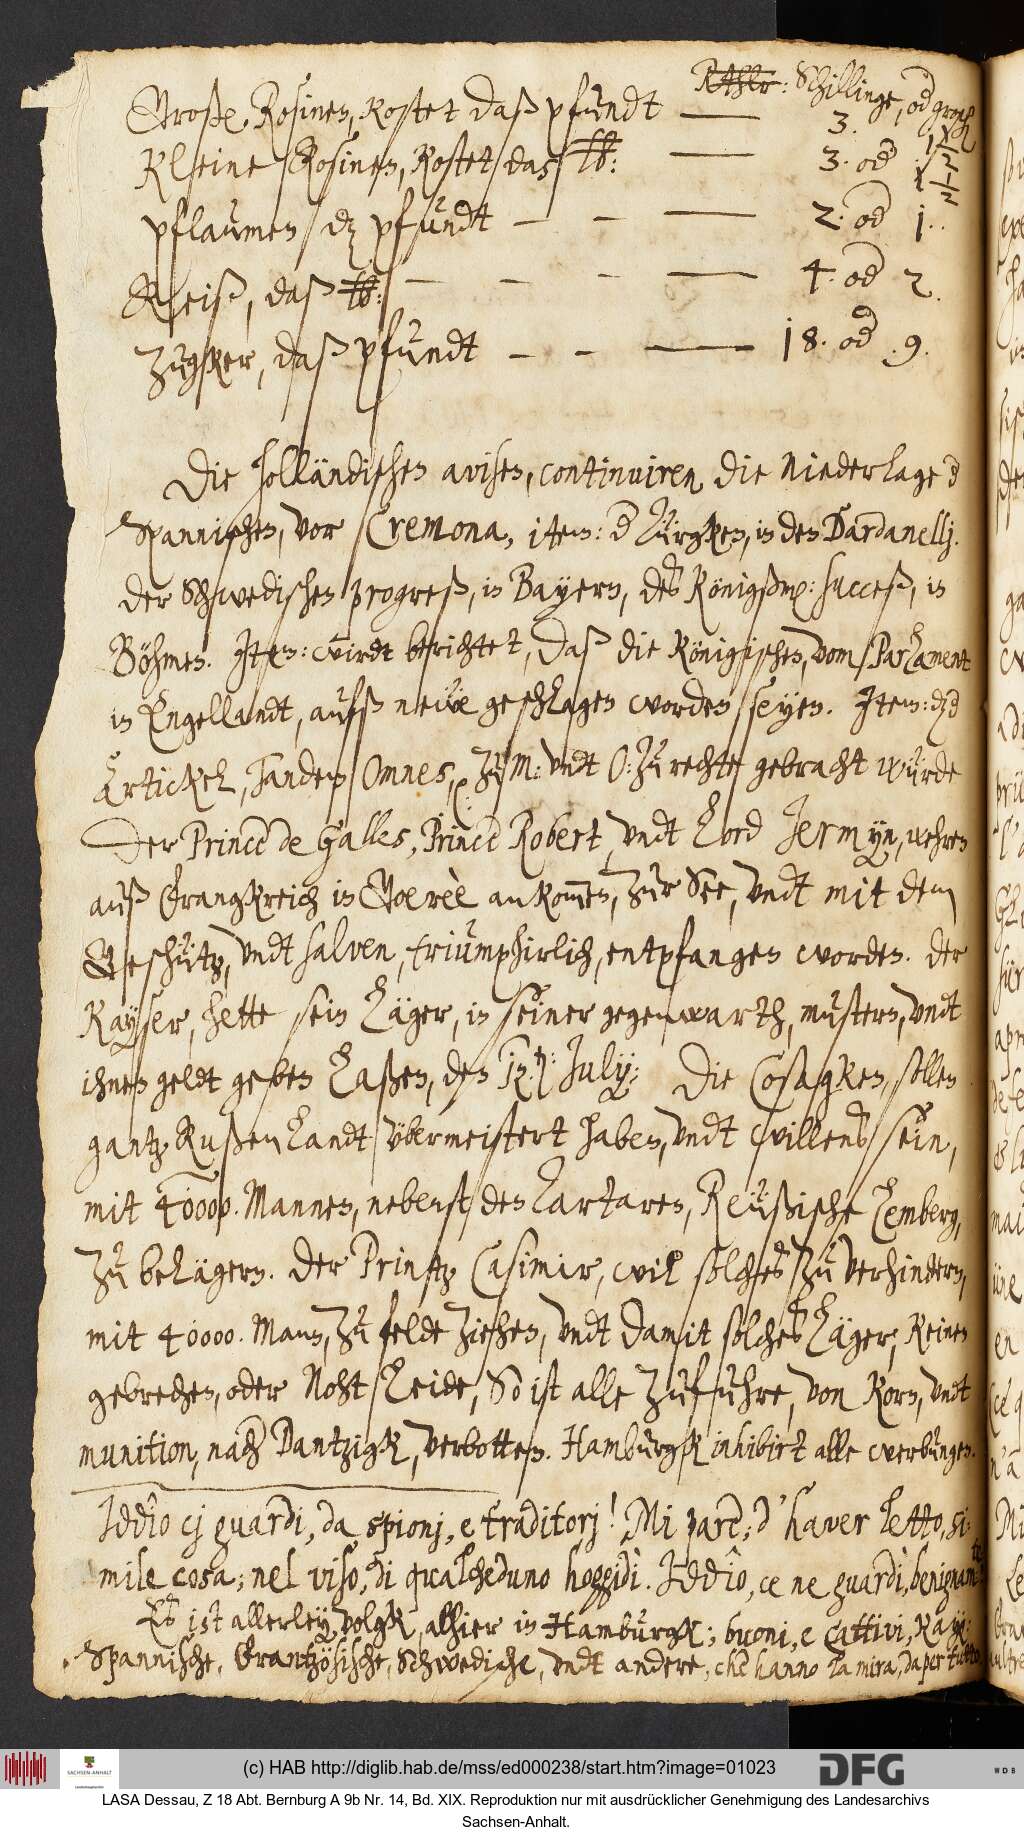 Rthlr: Schillinge, od grosch
Große Rosinen, kostet daß pfundt — 3. 1½
Kleine Rosinen, kostet das lb: — 3. od 1½
pflaumen dz pfundt — — — 2. od 1.
Reiß, daß lb: — — — — 4. od 2.
Zugker, daß pfundt — — — 18. od .9.
Die holländischen avisen, continuiren die Niederlage d
Spannischen, vor Cremona, item: d Türgken, in den Dardanellj.
der Schwedischen progreß, in Bayern, des Königßm: succeß, in
Böhmen. Item: wirdt berichtet, daß die Königischen, vom Parlament
in Engellandt, aufs neue geschlagen worden seyen. Item: dz d
Artickel, Tandem Omnes, zu M: undt O: zu rechte gebracht würde
Der Prince de Galles, Prince Robert, undt Lord Jermyn, wehren
auß Frangkreich in Goeree ankommen, zur See, undt mit dem
Geschütz, undt salven, triumphirlich, entpfangen worden. Der
Kayser, hette sein Läger, in seiner gegenwarth, mustern, undt
ihnen geldt geben laßen, den July; Die Cosagken, sollen
gantz Rußen Landt übermeistert haben, undt willens sein,
mit 40000. Mannen, nebenst den Tartaren, Reußische Lemberg,
zu belägern. Der Printz Casimir, wil solches zu verhindern,
mit 40000. Mann, zu felde ziehen, undt damit solches Läger, keinen
gebrechen, oder Noht leide, So ist alle zufuhre, von Korn, undt
munition, nach Dantzigk, verbotten. Hamburgk inhibirt alle werbungen.
Iddio cj guardi, da spionj, e traditorj! Mi pare, d' haver letto, si-
mile cosa; nel viso, di qualcheduno hoggidì. Iddio, ce ne guardi, benignamte:
Es ist allerley volgk, alhier in Hamburgk; buoni, e cattivi, Kay:
Spannische, Frantzösische, Schwedische, undt andere, che hanno la mira, da per tutto
(c) HAB http://diglib.hab.de/mss/ed000238/start.htm?image=01023
SACHSEN-ANHALT
DFG
WDB
LASA Dessau, Z 18 Abt. Bernburg A 9b Nr. 14, Bd. XIX. Reproduktion nur mit ausdrücklicher Genehmigung des Landesarchivs
Sachsen-Anhalt.